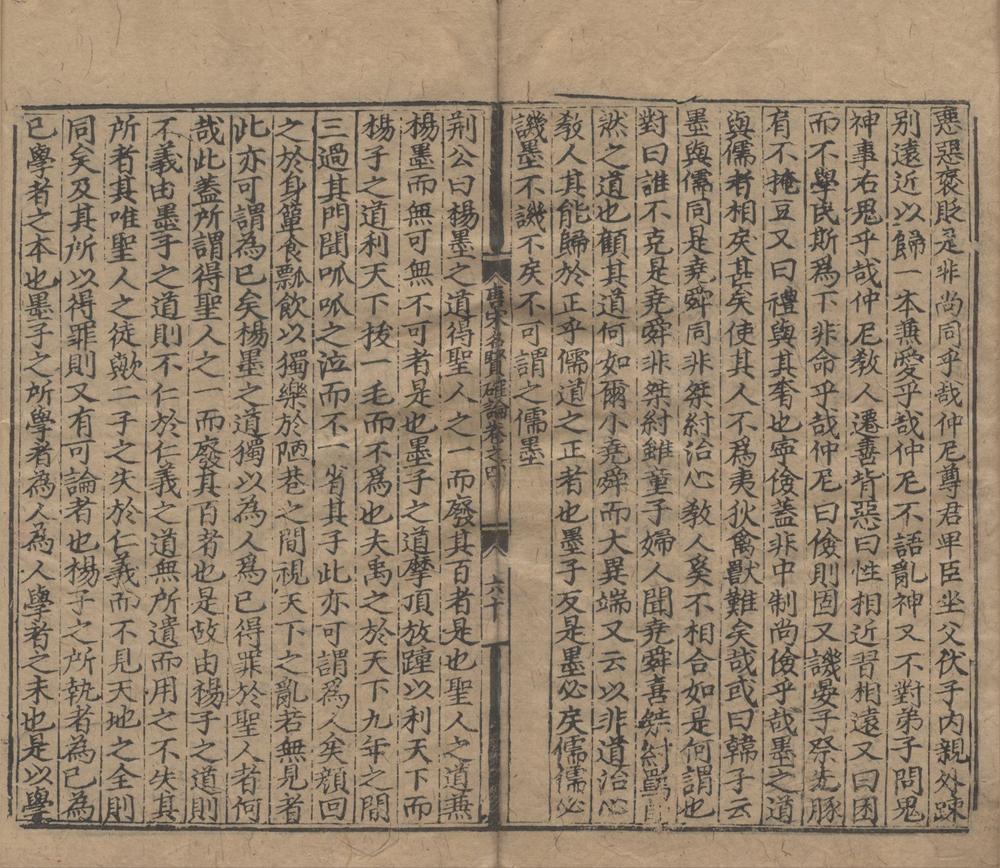 惡惡褒貶是非尚同乎哉仲尼尊君卑臣坐父伏子內親外踈
別遠近以歸一本兼愛乎哉仲尼不語亂神又不對弟子問鬼
神事右鬼乎哉仲尼教人遷善背惡曰性相近習相遠又曰困
而不學民斯爲下非命乎哉仲尼曰儉則固又譏晏子祭先豚
肩不掩豆又曰禮與其奢也寧儉蓋非中制尚儉乎哉墨之道
與儒者相戾甚矣使其人不爲夷狄禽獸難矣哉或曰韓子云
墨與儒同是堯舜同非桀紂治心教人奚不相合如是何謂也
對曰誰不克是堯舜非桀紂雖童子婦人聞堯舜喜桀紂
然之道也顧其道何如爾小堯舜而大異端又云以非道治心
教人其能歸於正乎儒道之正者也墨子反是墨必戾儒儒必
譏墨不譏不戾不可謂之儒墨
唐宋名賢確論卷之四
六十
荆公曰楊墨之道得聖人之一而廢其百者是也聖人之道兼
楊墨而無可無不可者是也墨子之道摩頂放踵以利天下而
楊子之道利天下拔一毛而不爲也夫禹之於天下九年之間
三過其門聞呱呱之泣而不一省其子此亦可謂為人矣顏回
之於身簞食瓢飲以獨樂於陋巷之間視天下之亂若無見者
此亦可謂為已矣楊墨之道獨以為人爲已得罪於聖人者何
哉此蓋所謂得聖人之一而廢其百者也是故由楊子之道則
不義由墨子之道則不仁於仁義之道無所遺而用之不失其
所者其唯聖人之徒歟二子之失於仁義而不見天地之全則
同矣及其所以得罪則又有可論者也楊子之所執者為已為
已學者之本也墨子之所學者為人為人學者之末也是以學